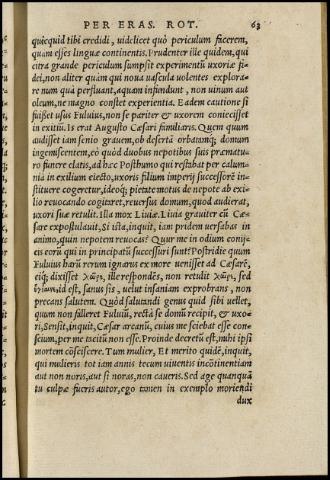 PER ERAS. ROT. 63
quicquid tibi credidi, uidelicet quò periculum facerem,
quam esses linguæ continentis. Prudenter ille quidem, qui
citra grande periculum sumpsit experimentũ uxoriæ fi-
dei, non aliter quàm qui noua uascula uolentes explora-
re num quà perfluant, aquam infundunt, non uinum aut
oleum, ne magno constet experientia. Eadem cautione si
fuisset usus Fuluius, non se pariter & uxorem coniecisset
in exitiũ. Is erat Augusto Cæsari familiaris. Quem quum
audisset iam senio grauem, ob desertã orbatamq; domum
ingemiscentem, eò quòd duobus nepotibus suis præmatu-
ro funere elatis, ad hæc Posthumo qui restabat per calum-
nia in exilium eiecto, uxoris filium imperij successorē in-
stituere cogeretur, ideoq; pietate motus de nepote ab exi-
lio reuocando cogitaret, reuersus domum, quod audierat,
uxori suæ retulit. Illa mox Liuiæ. Liuia grauiter cũ Cæ-
sare expostulauit, Si ista, inquit, iam pridem uersabas in
animo, quin nepotem reuocas? Quur me in odium conij-
cis eorũ qui in principatũ successuri sunt? Postridie quum
Fuluius harũ rerum ignarus ex more uenisset ad Cæsarē,
eiq; dixisset χαῖρε, ille respondēs, non retulit χαῖρε, sed
ὑγίαινε, id est, sanus sis, uelut insaniam exprobrans, non
precans salutem. Quòd salutandi genus quid sibi uellet,
quum non falleret Fuluiũ, rectà se domũ recipit, & uxo-
ri, Sensit, inquit, Cæsar arcanũ, cuius me sciebat esse con-
scium, per me tacitũ non esse. Proinde decretũ est, mihi ipsi
mortem cōsciscere. Tum mulier, Et merito quidē, inquit,
qui mulieris tot iam annis tecum uiuentis incōtinentiam
aut non noris, aut si noras, non caueris. Sed age quanquã
tu culpæ fueris autor, ego tamen in exemplo moriendi
dux